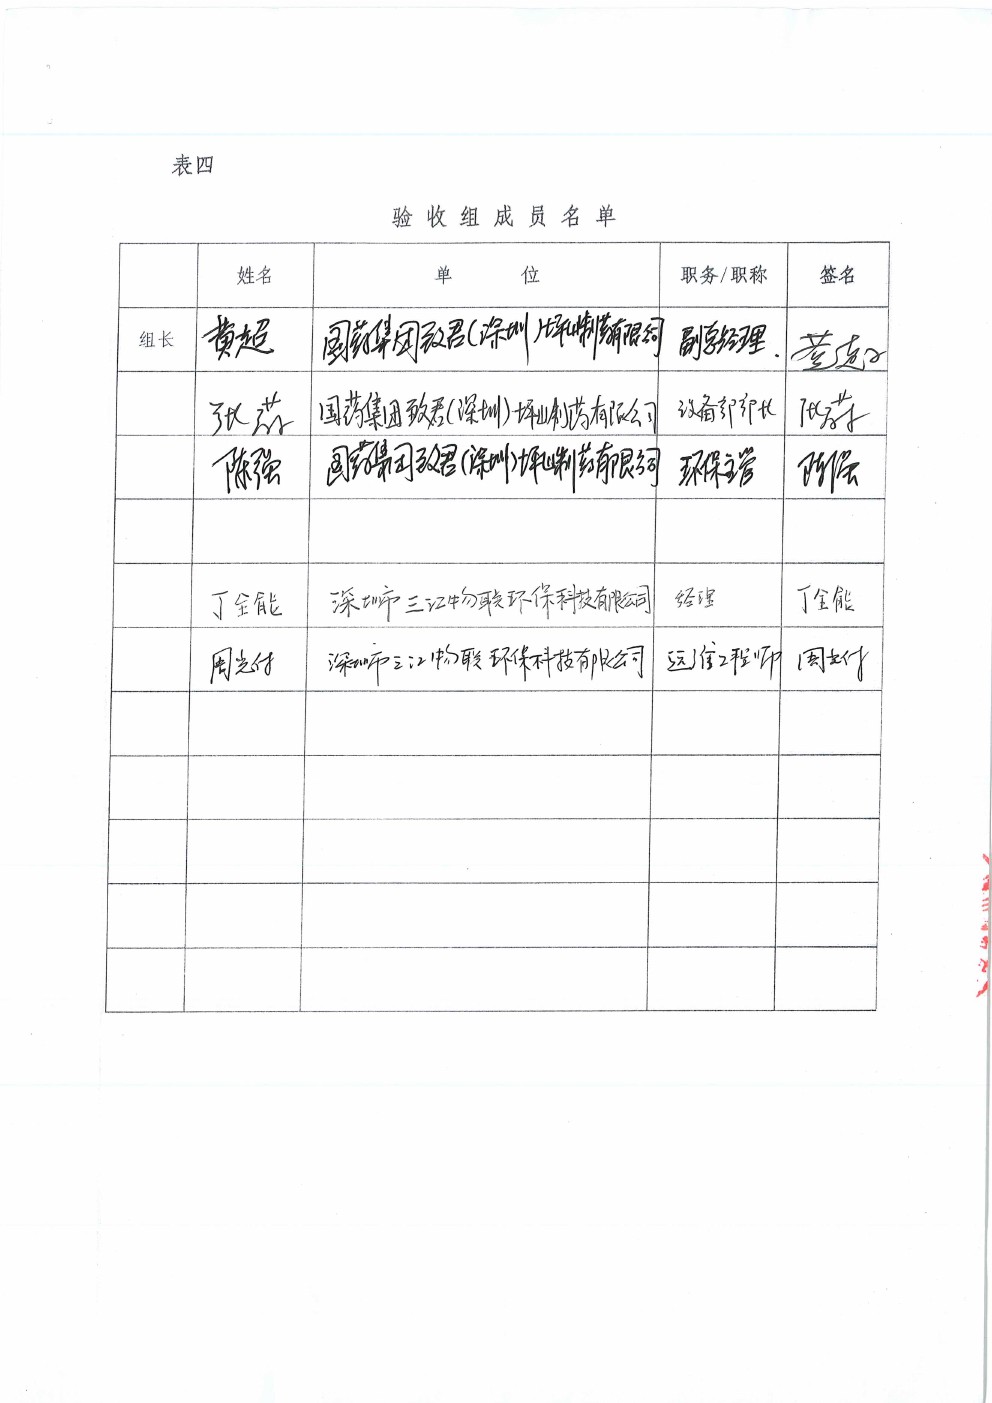 表四
验收组成员名单
姓名 单位 职务/职称 签名
组长 黄超 国药集团致君(深圳)坪山制药有限公司 副总经理. 黄超
张 国药集团致君(深圳)坪山制药有限公司 设备部部长 张
陈强 国药集团致君(深圳)坪山制药有限公司 环保主管 陈强
丁全能 深圳市三江物联环保科技有限公司 经理 丁全能
周光付 深圳市三江物联环保科技有限公司 运维工程师 周光付